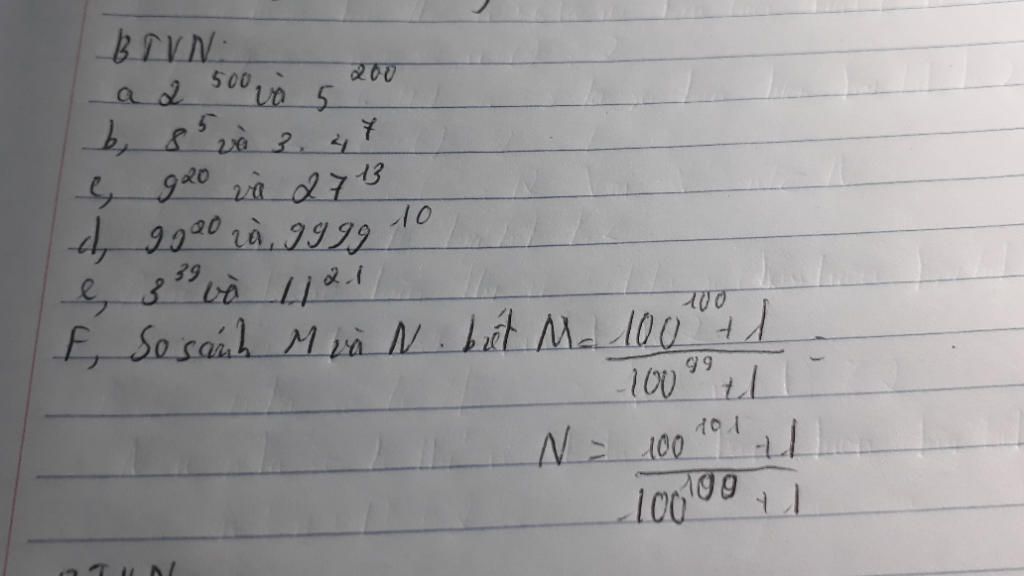 BTVN:
a 2^500 và 5^200
b, 8^5 và 3. 4^7
c, 9^20 và 27^13
d, 99^20 và. 9999^10
e, 3^39 và 11^2.1
F, So sánh M và N. biết M = (100^100 + 1)/(100^99 + 1) =
N = (100^101 + 1)/(100^100 + 1)